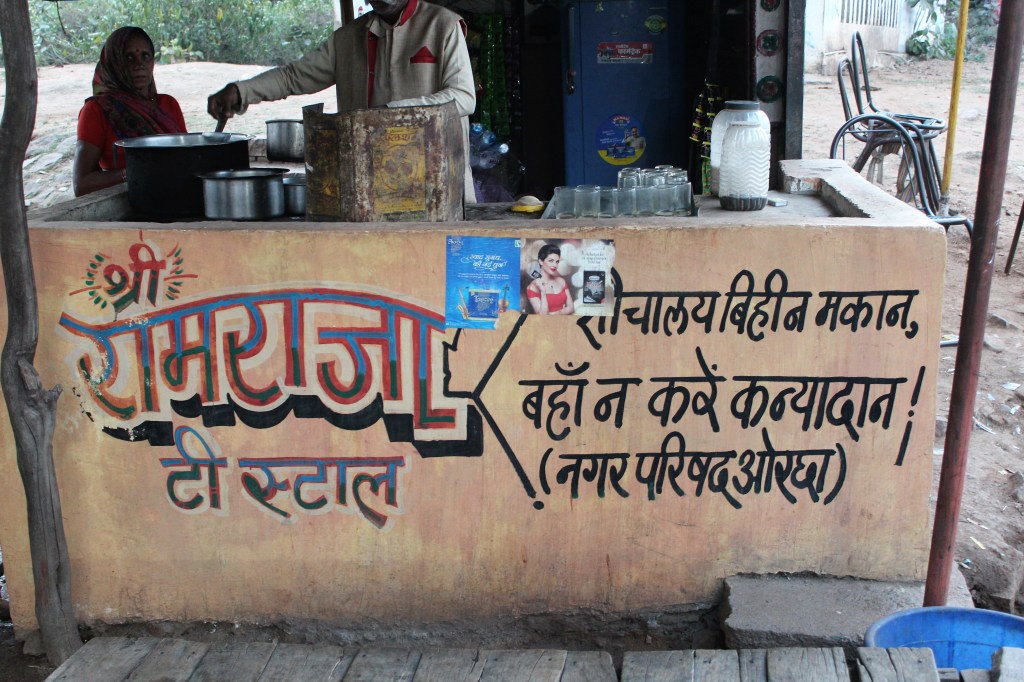 श्री
रामराजा
टी स्टाल
शौचालय बिहीन मकान,
बहाँ न करें कन्यादान!
(नगर परिषद ओरछा)